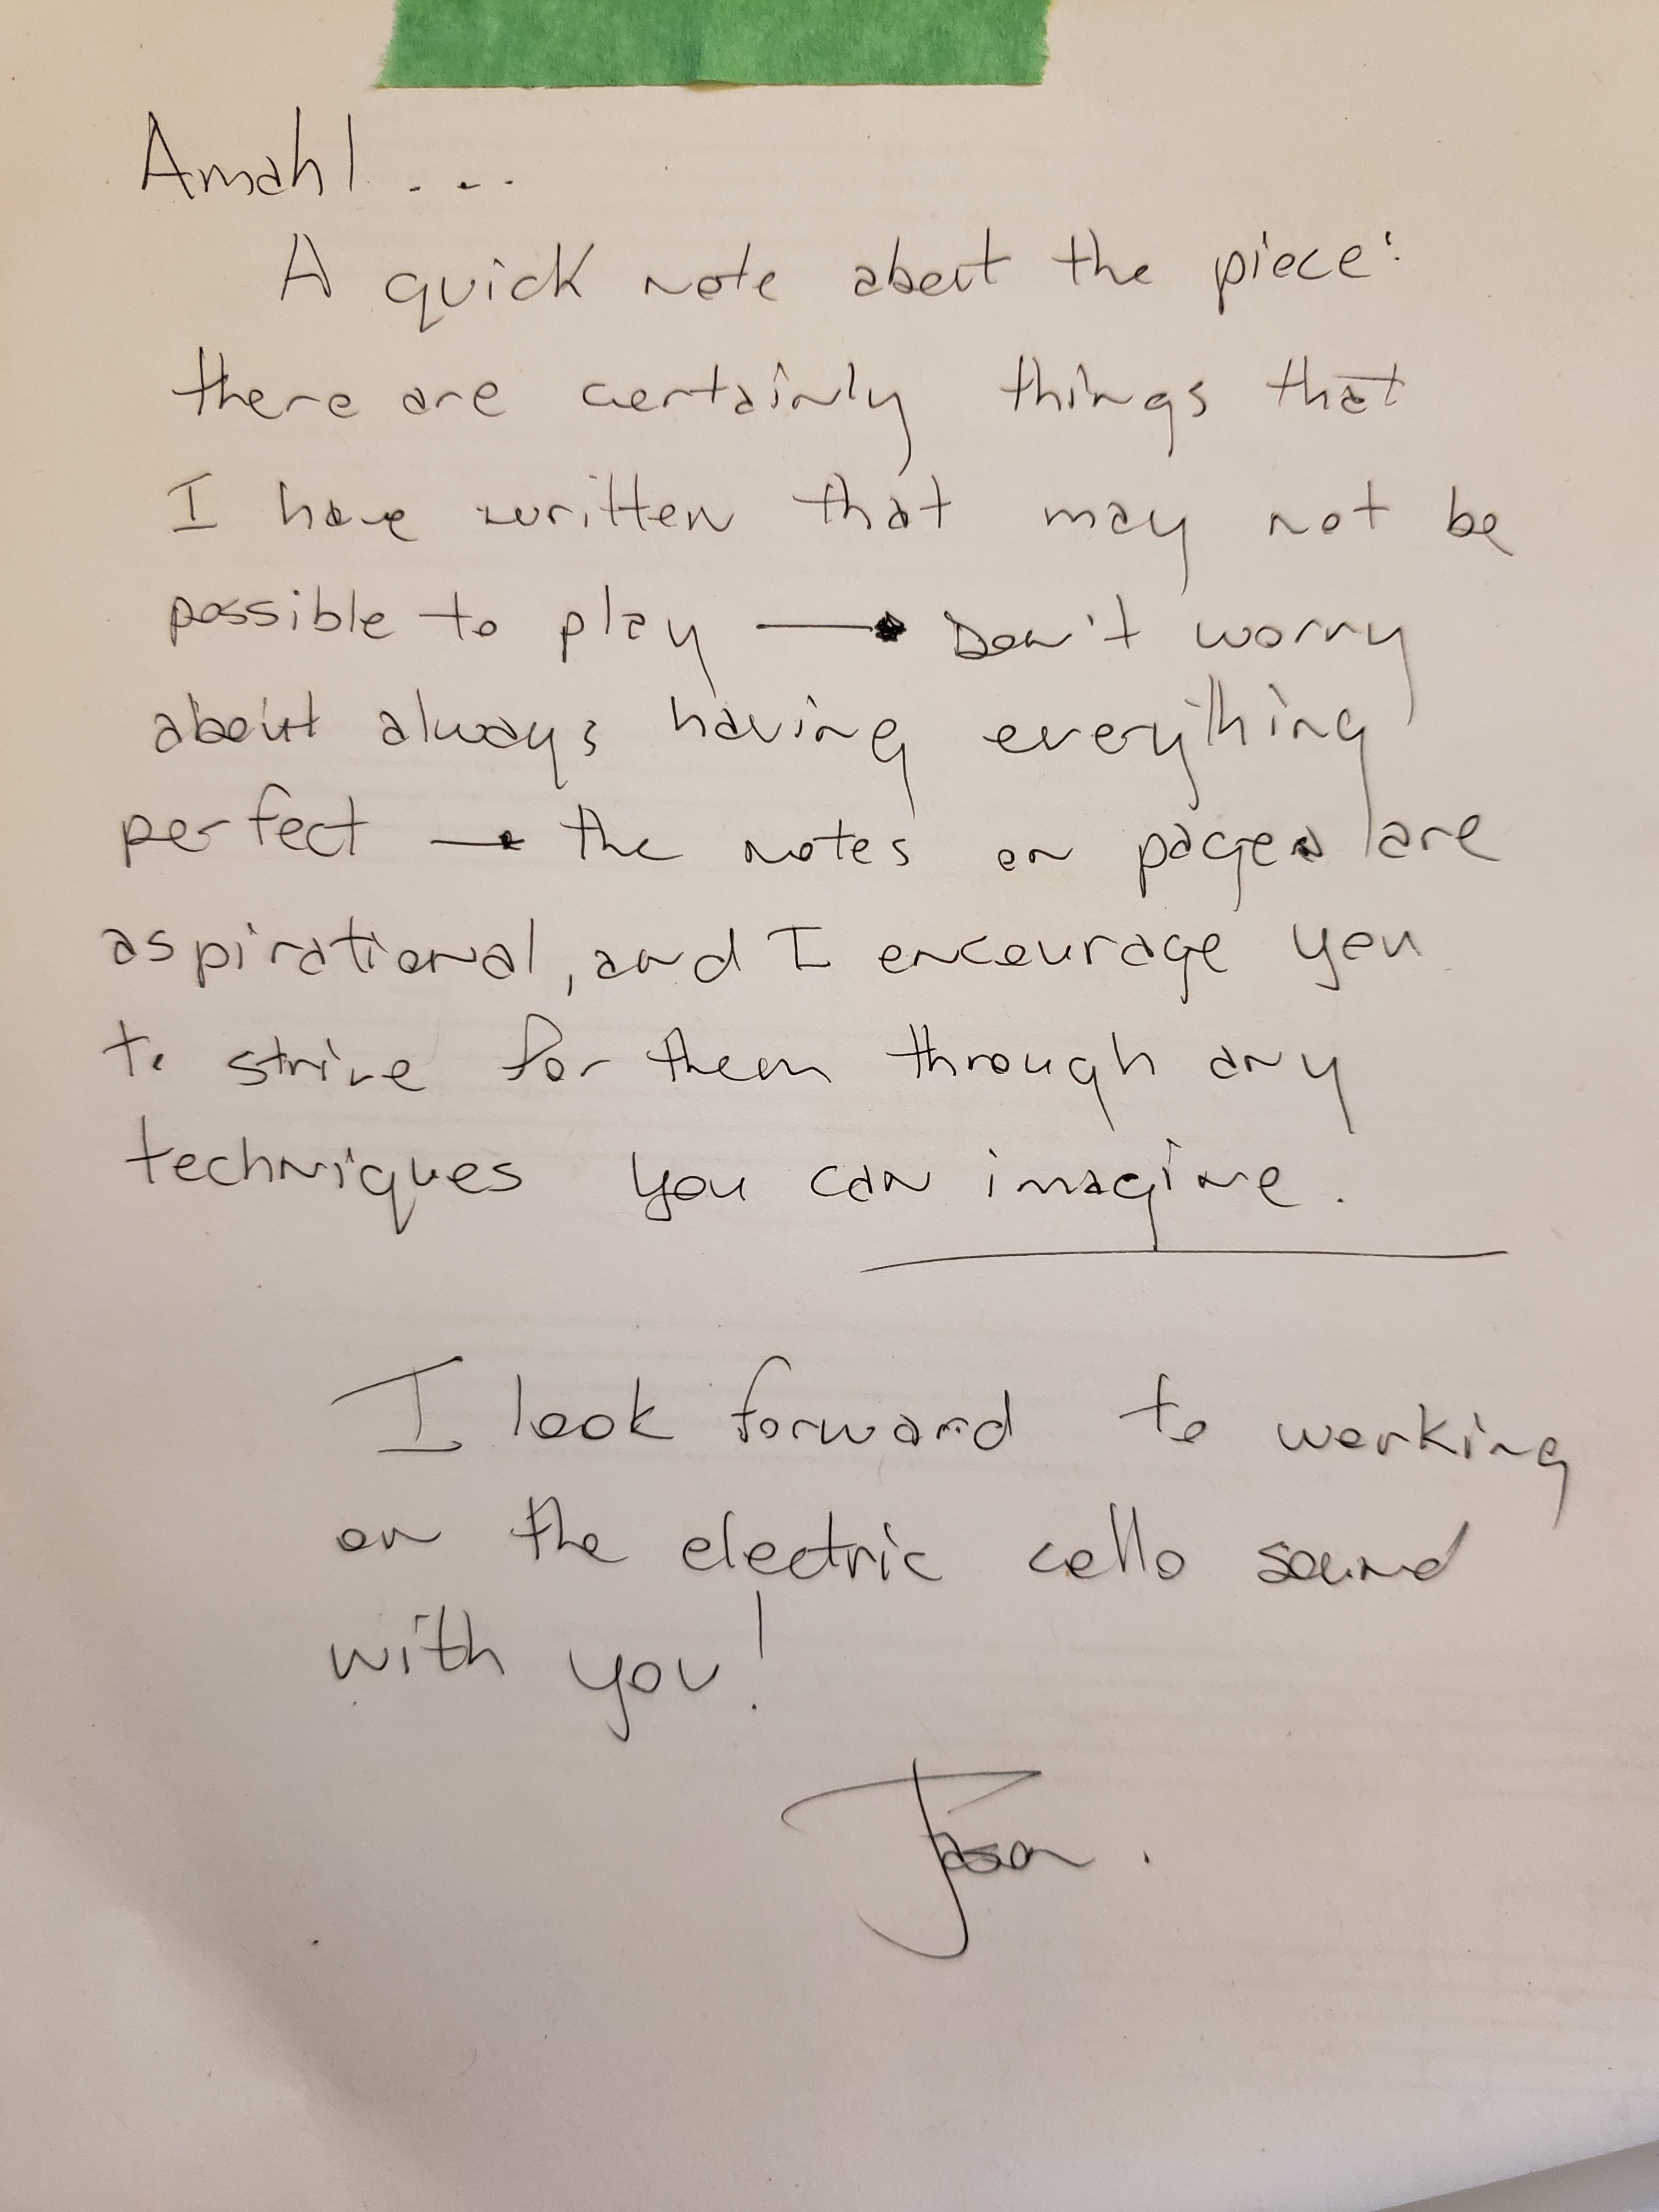 Amahl....
A quick note about the piece:
there are certainly things that
I have written that may not be
possible to play → Don't worry
about always having everything
perfect → the notes on page are
aspirational, and I encourage you
to strive for them through any
techniques you can imagine.
I look forward to working
on the electric cello sound
with you!
Jason.